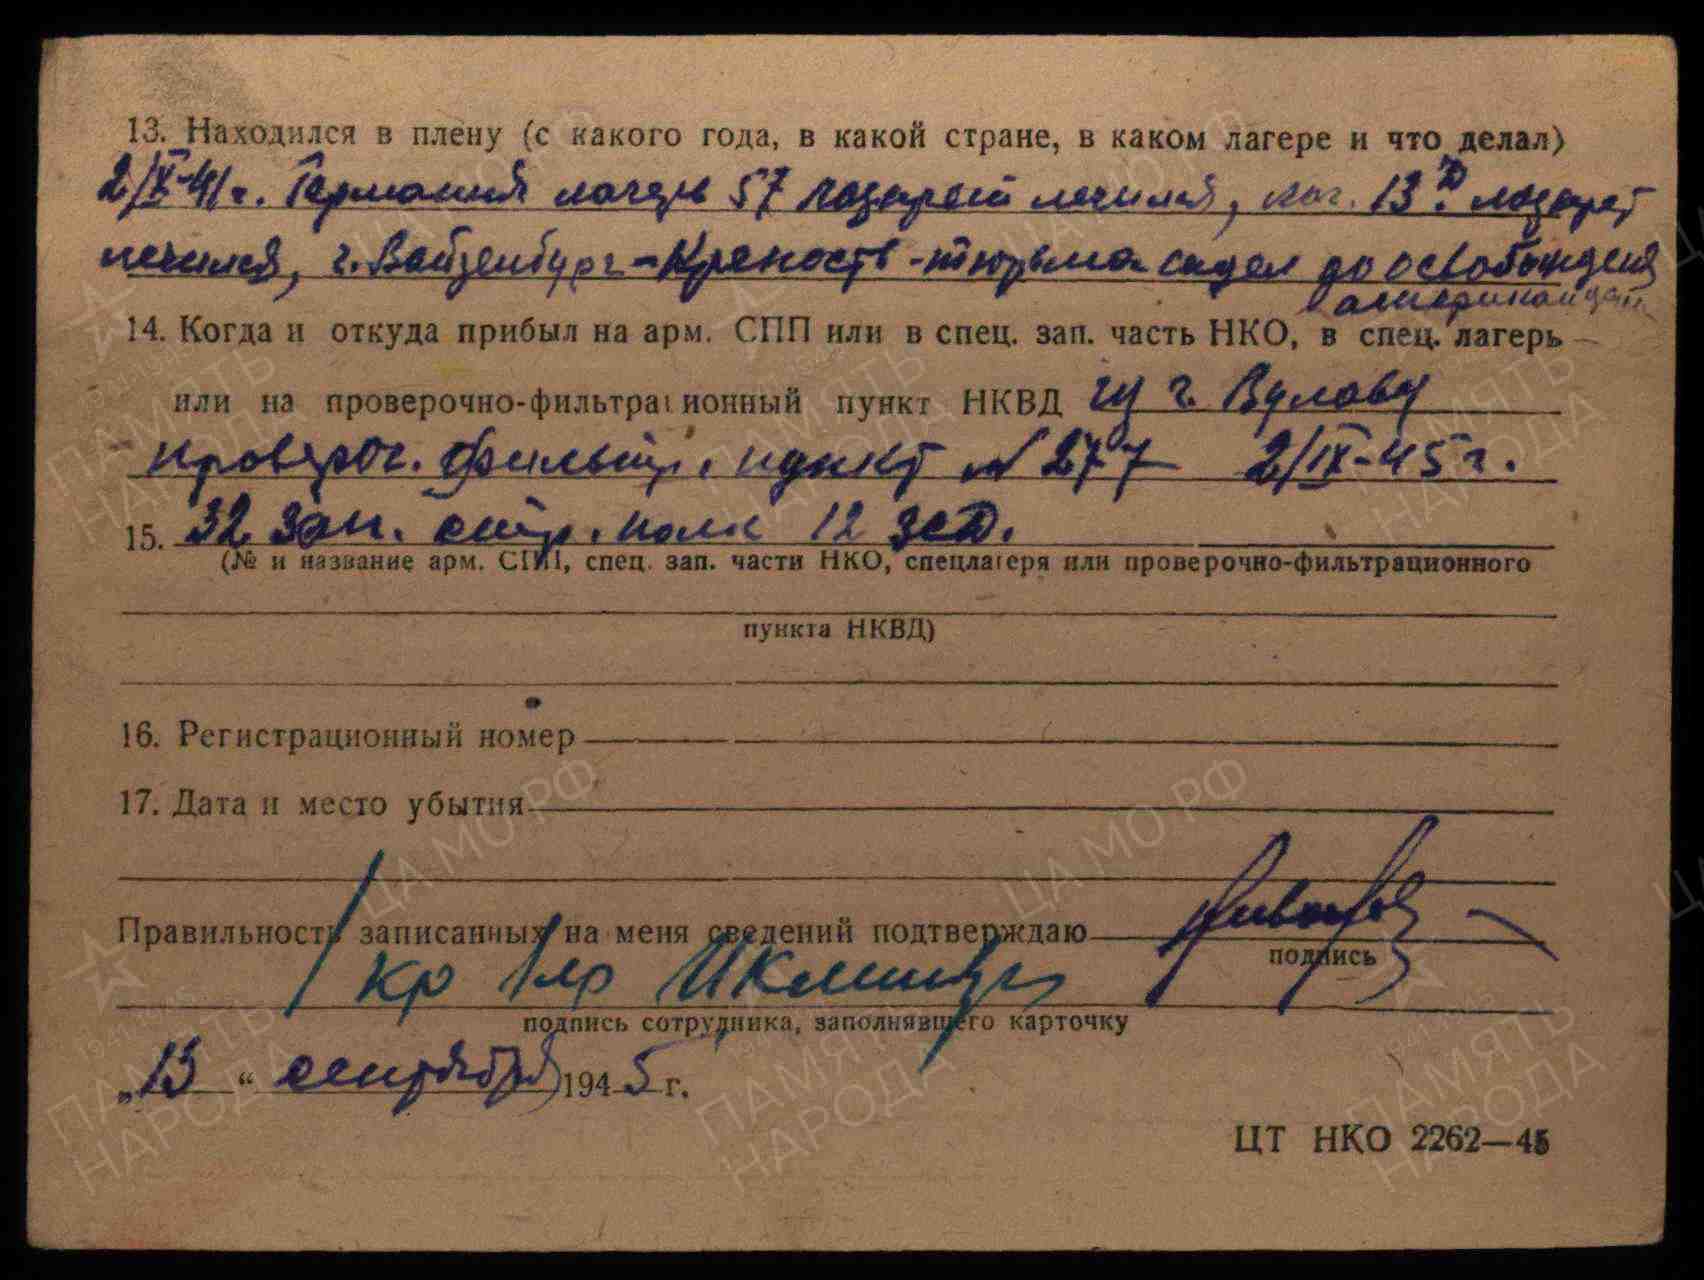 13. Находился в плену (с какого года, в какой стране, в каком лагере и что делал)
2/IX-41г. Германия лагерь 57 лазарет лечился, лаг. 13Д лазарет
лечился, г. Вайзенбург - Крепость - тюрьма сидел до освобождения
американцами
14. Когда и откуда прибыл на арм. СПП или в спец. зап. часть НКО, в спец. лагерь
или на проверочно-фильтрационный пункт НКВД из г.
провероч. фильтр. пункт № 277 2/IX-45г.
15. 32 зап. стр. полк 12 ЗСД.
(№ и название арм. СПП, спец. зап. части НКО, спецлагеря или проверочно-фильтрационного
пункта НКВД)
16. Регистрационный номер
17. Дата и место убытия
Правильность записанных на меня сведений подтверждаю
подпись
кр
подпись сотрудника, заполнявшего карточку
„13“ сентября 1945 г.
ЦТ НКО 2262—45
ЦА МО РФ
ПАМЯТЬ НАРОДА
1941-1945